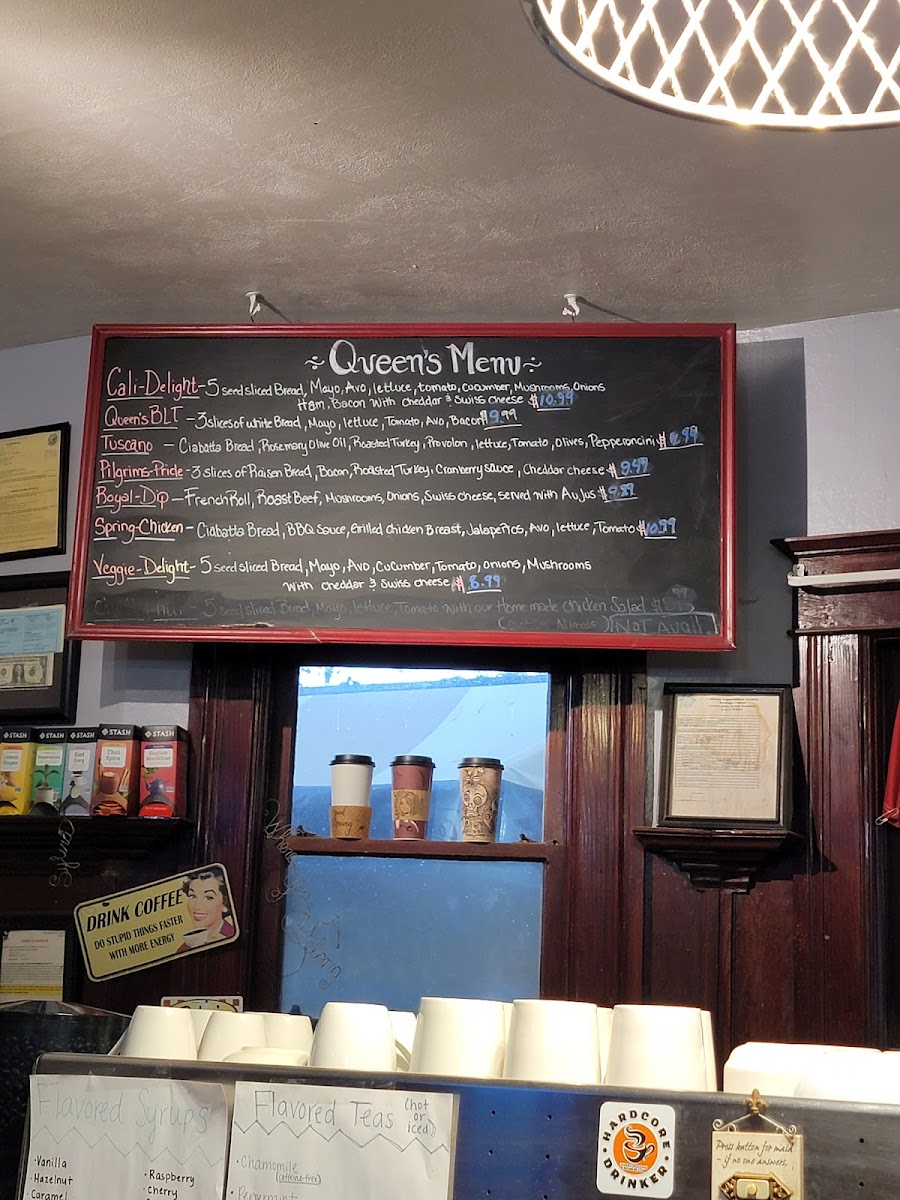 Queen's Menu
Cali-Delight - 5 seed sliced Bread, Mayo, Avo, lettuce, tomato, cucumber, Mushrooms, Onions
Ham, Bacon With Cheddar & Swiss cheese $10.99
Queen's BLT - 3 slices of white Bread, Mayo, lettuce, Tomato, Avo, Bacon $9.99
Tuscano - Ciabatta Bread, Rosemary Olive Oil, Roasted Turkey, Provolon, lettuce, Tomato, Olives, Pepperoncini
Pilgrims-Pride - 3 slices of Raisen Bread, Bacon, Roasted Turkey, Cranberry sauce, Cheddar cheese $9.99
Royal-Dip - French Roll, Roast Beef, Mushrooms, Onions, Swiss cheese, served with Au Jus $9.89
Spring-Chicken - Ciabatta Bread, BBQ Sauce, Grilled chicken Breast, Jalapeños, Avo, lettuce, Tomato $10.99
Veggie-Delight - 5 seed sliced Bread, Mayo, Avo, Cucumber, Tomato, onions, Mushrooms
With cheddar & Swiss cheese $8.99
- 5 seed sliced Bread, Mayo, lettuce, Tomato with our Home made Chicken Salad
NOT Avail.
STASH
STASH
STASH
STASH
Chai Spice
STASH
English Breakfast
Peppermint
Earl Grey
DRINK COFFEE
DO STUPID THINGS FASTER
WITH MORE ENERGY
Flavored Syrups
• Vanilla
• Hazelnut
• Caramel
• Raspberry
• Cherry
Flavored Teas (hot or iced)
• Chamomile
(caffeine-free)
• Peppermint
HARDCORE
DRINKER
Press button for maid
- if no one answers,